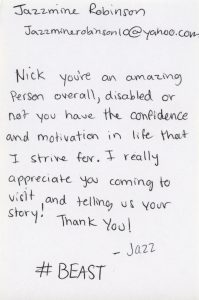 Jazzmine Robinson
Jazzminerobinson10@yahoo.com
Nick you're an amazing
Person overall, disabled or
not you have the confidence
and motivation in life that
I strive for. I really
appreciate you coming to
visit and telling us your
story! Thank You!
- Jazz
# BEAST